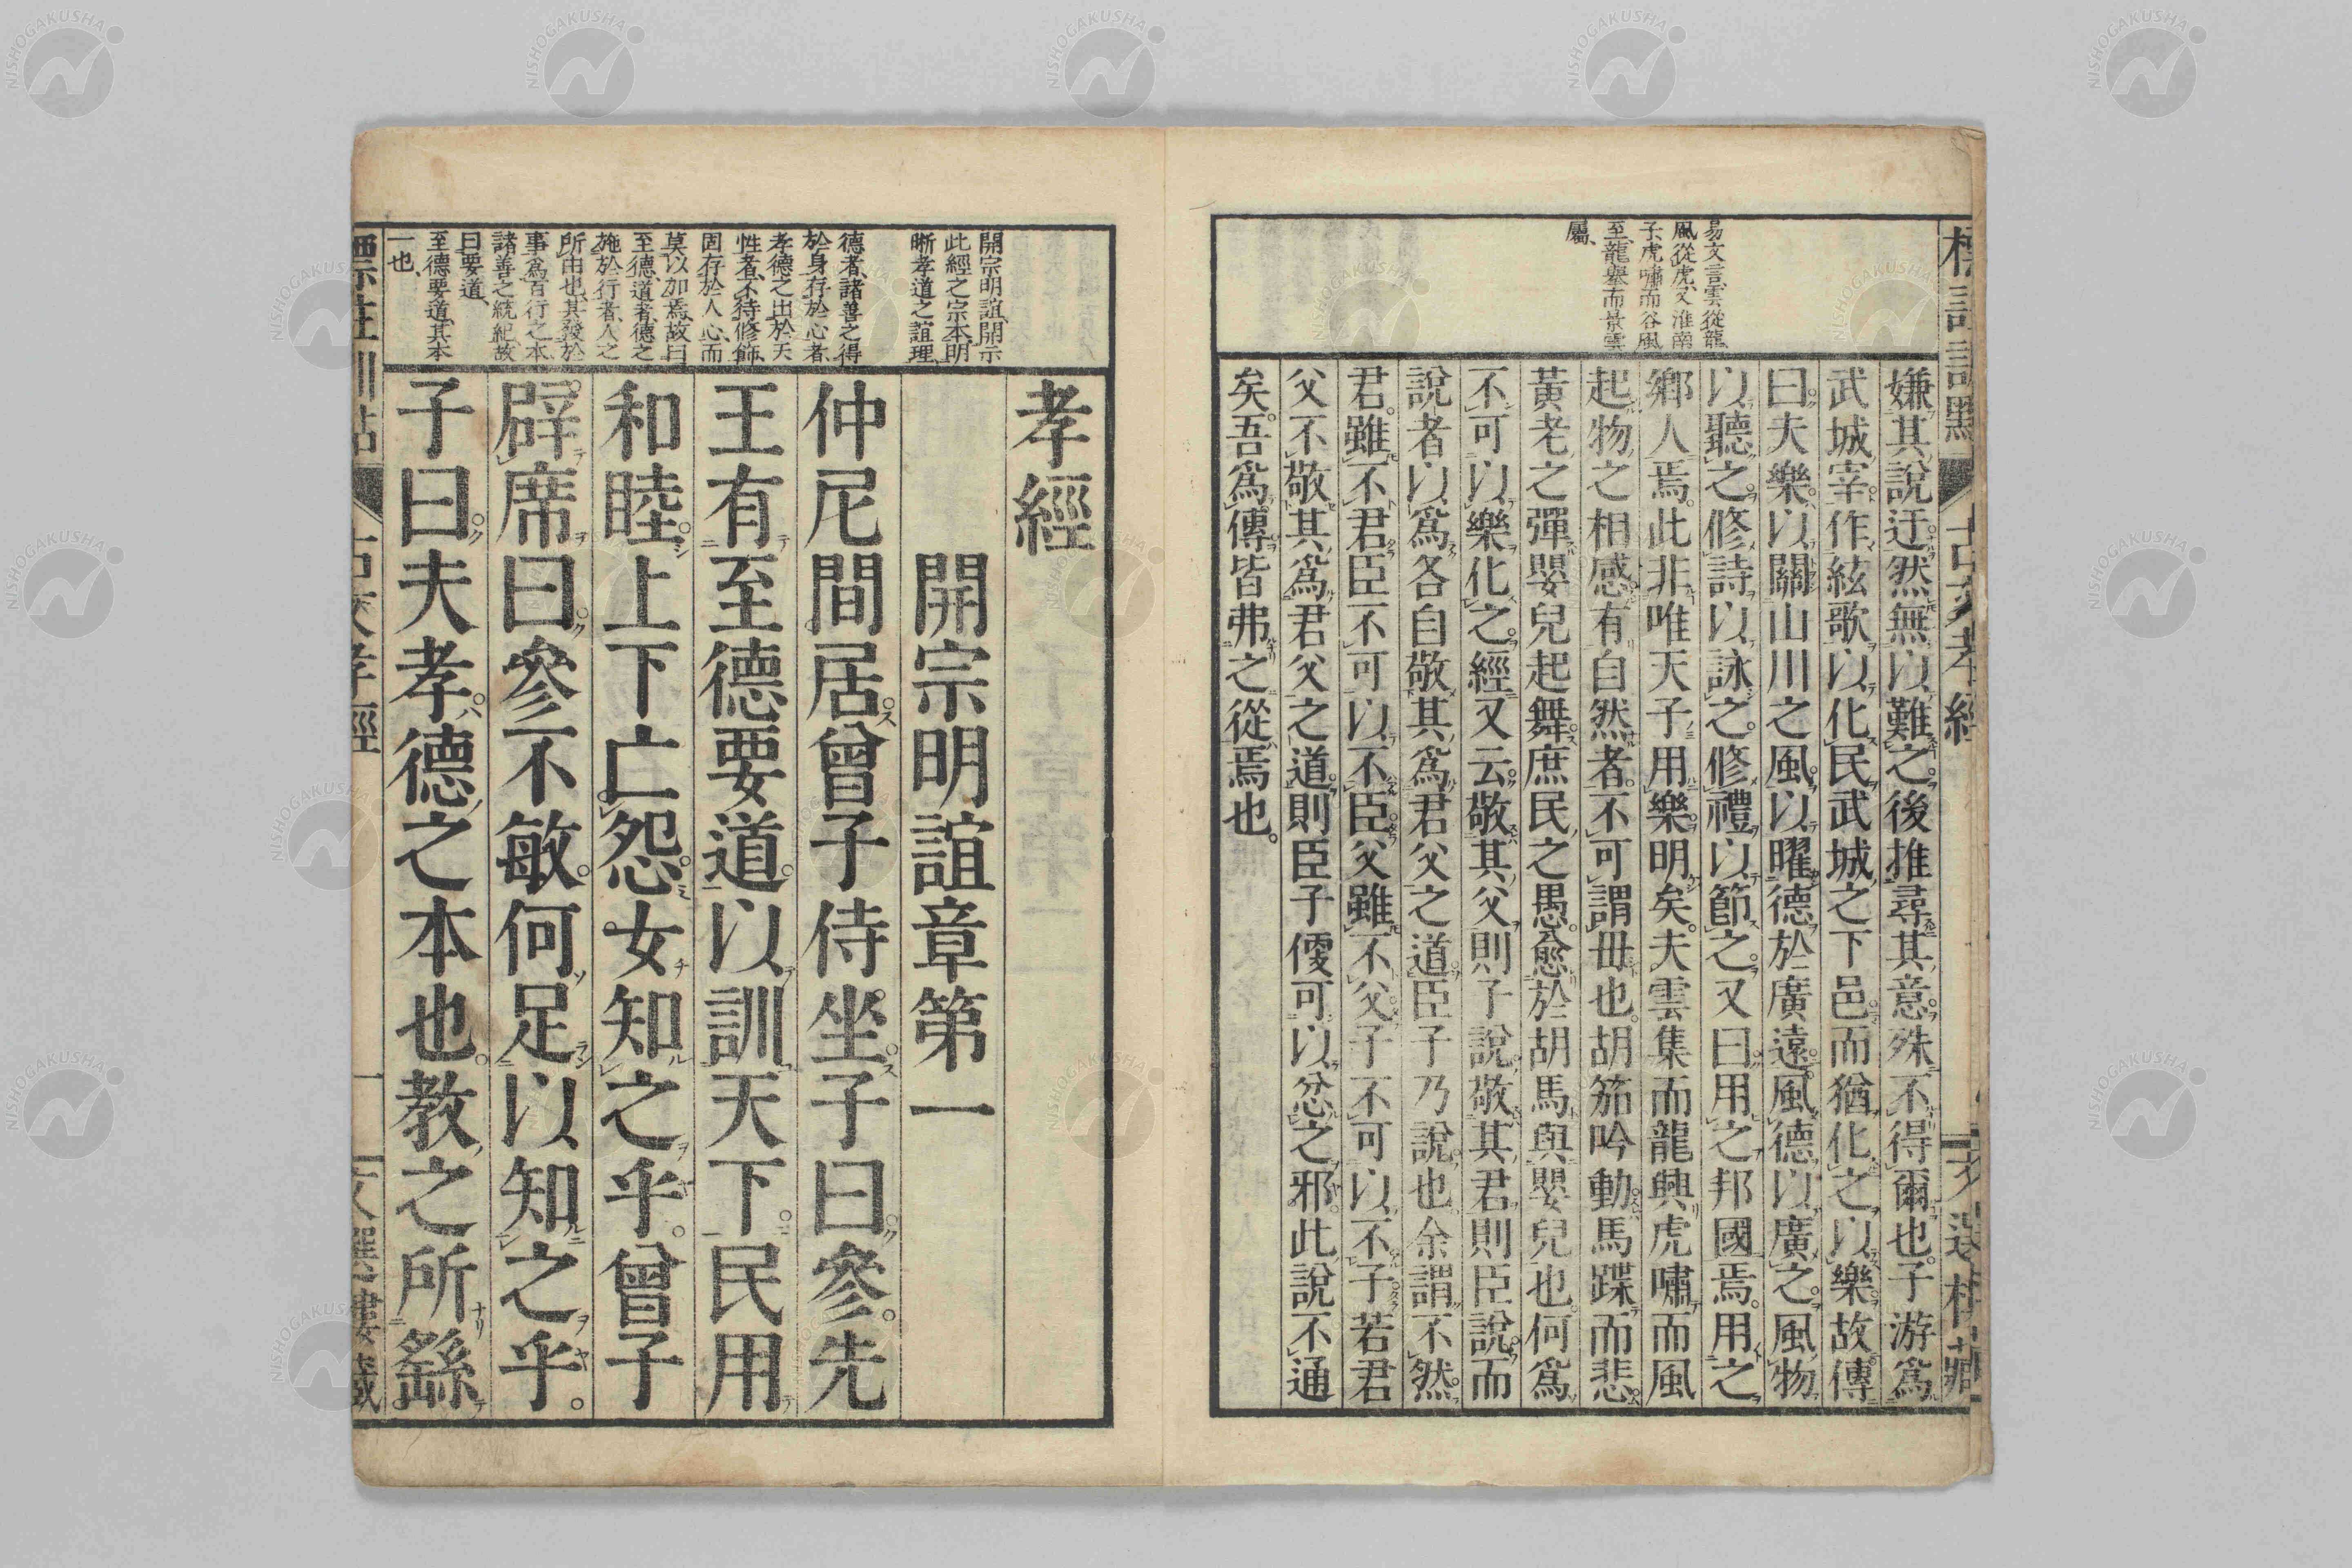 易文言雲從龍
風從虎又淮南
子虎嘯而谷風
至龍擧而景雲
屬
嫌其說迂然無以難之後推尋其意殊不得爾也子游爲
武城宰作絃歌以化民武城之下邑而猶化之以樂故傳
曰夫樂以關山川之風以曜德於廣遠風德以廣之風物
以聽之修詩以詠之修禮以節之又曰用之邦國焉用之
鄉人焉此非唯天子用樂明矣夫雲集而龍興虎嘯而風
起物之相感有自然者不可謂毋也胡笳吟動馬蹀而悲
黃老之彈嬰兒起舞庶民之愚愈於胡馬與嬰兒也何爲
不可以樂化之經又云敬其父則子說敬其君則臣說而
說者以爲各自敬其爲君父之道臣子乃說也余謂不然
君雖不君臣不可以不臣父雖不父子不可以不子若君
父不敬其爲君父之道則臣子便可以忿之邪此說不通
矣吾爲傳皆弗之從焉也
開宗明誼開示
此經之宗本明
晣孝道之誼理
德者諸善之得
於身存於心者
孝德之出於天
性者不待修飾
固存於人心而
莫以加焉故曰
至德道者德之
施於行者人之
所由也其發於
事爲百行之本
諸善之統紀故
曰要道
至德要道其本
一也
孝經
開宗明誼章第一
仲尼間居曾子侍坐子曰參先
王有至德要道以訓天下民用
和睦上下亡怨女知之乎曾子
辟席曰參不敏何足以知之乎
子曰夫孝德之本也教之所繇
標註訓點 古文孝經 一